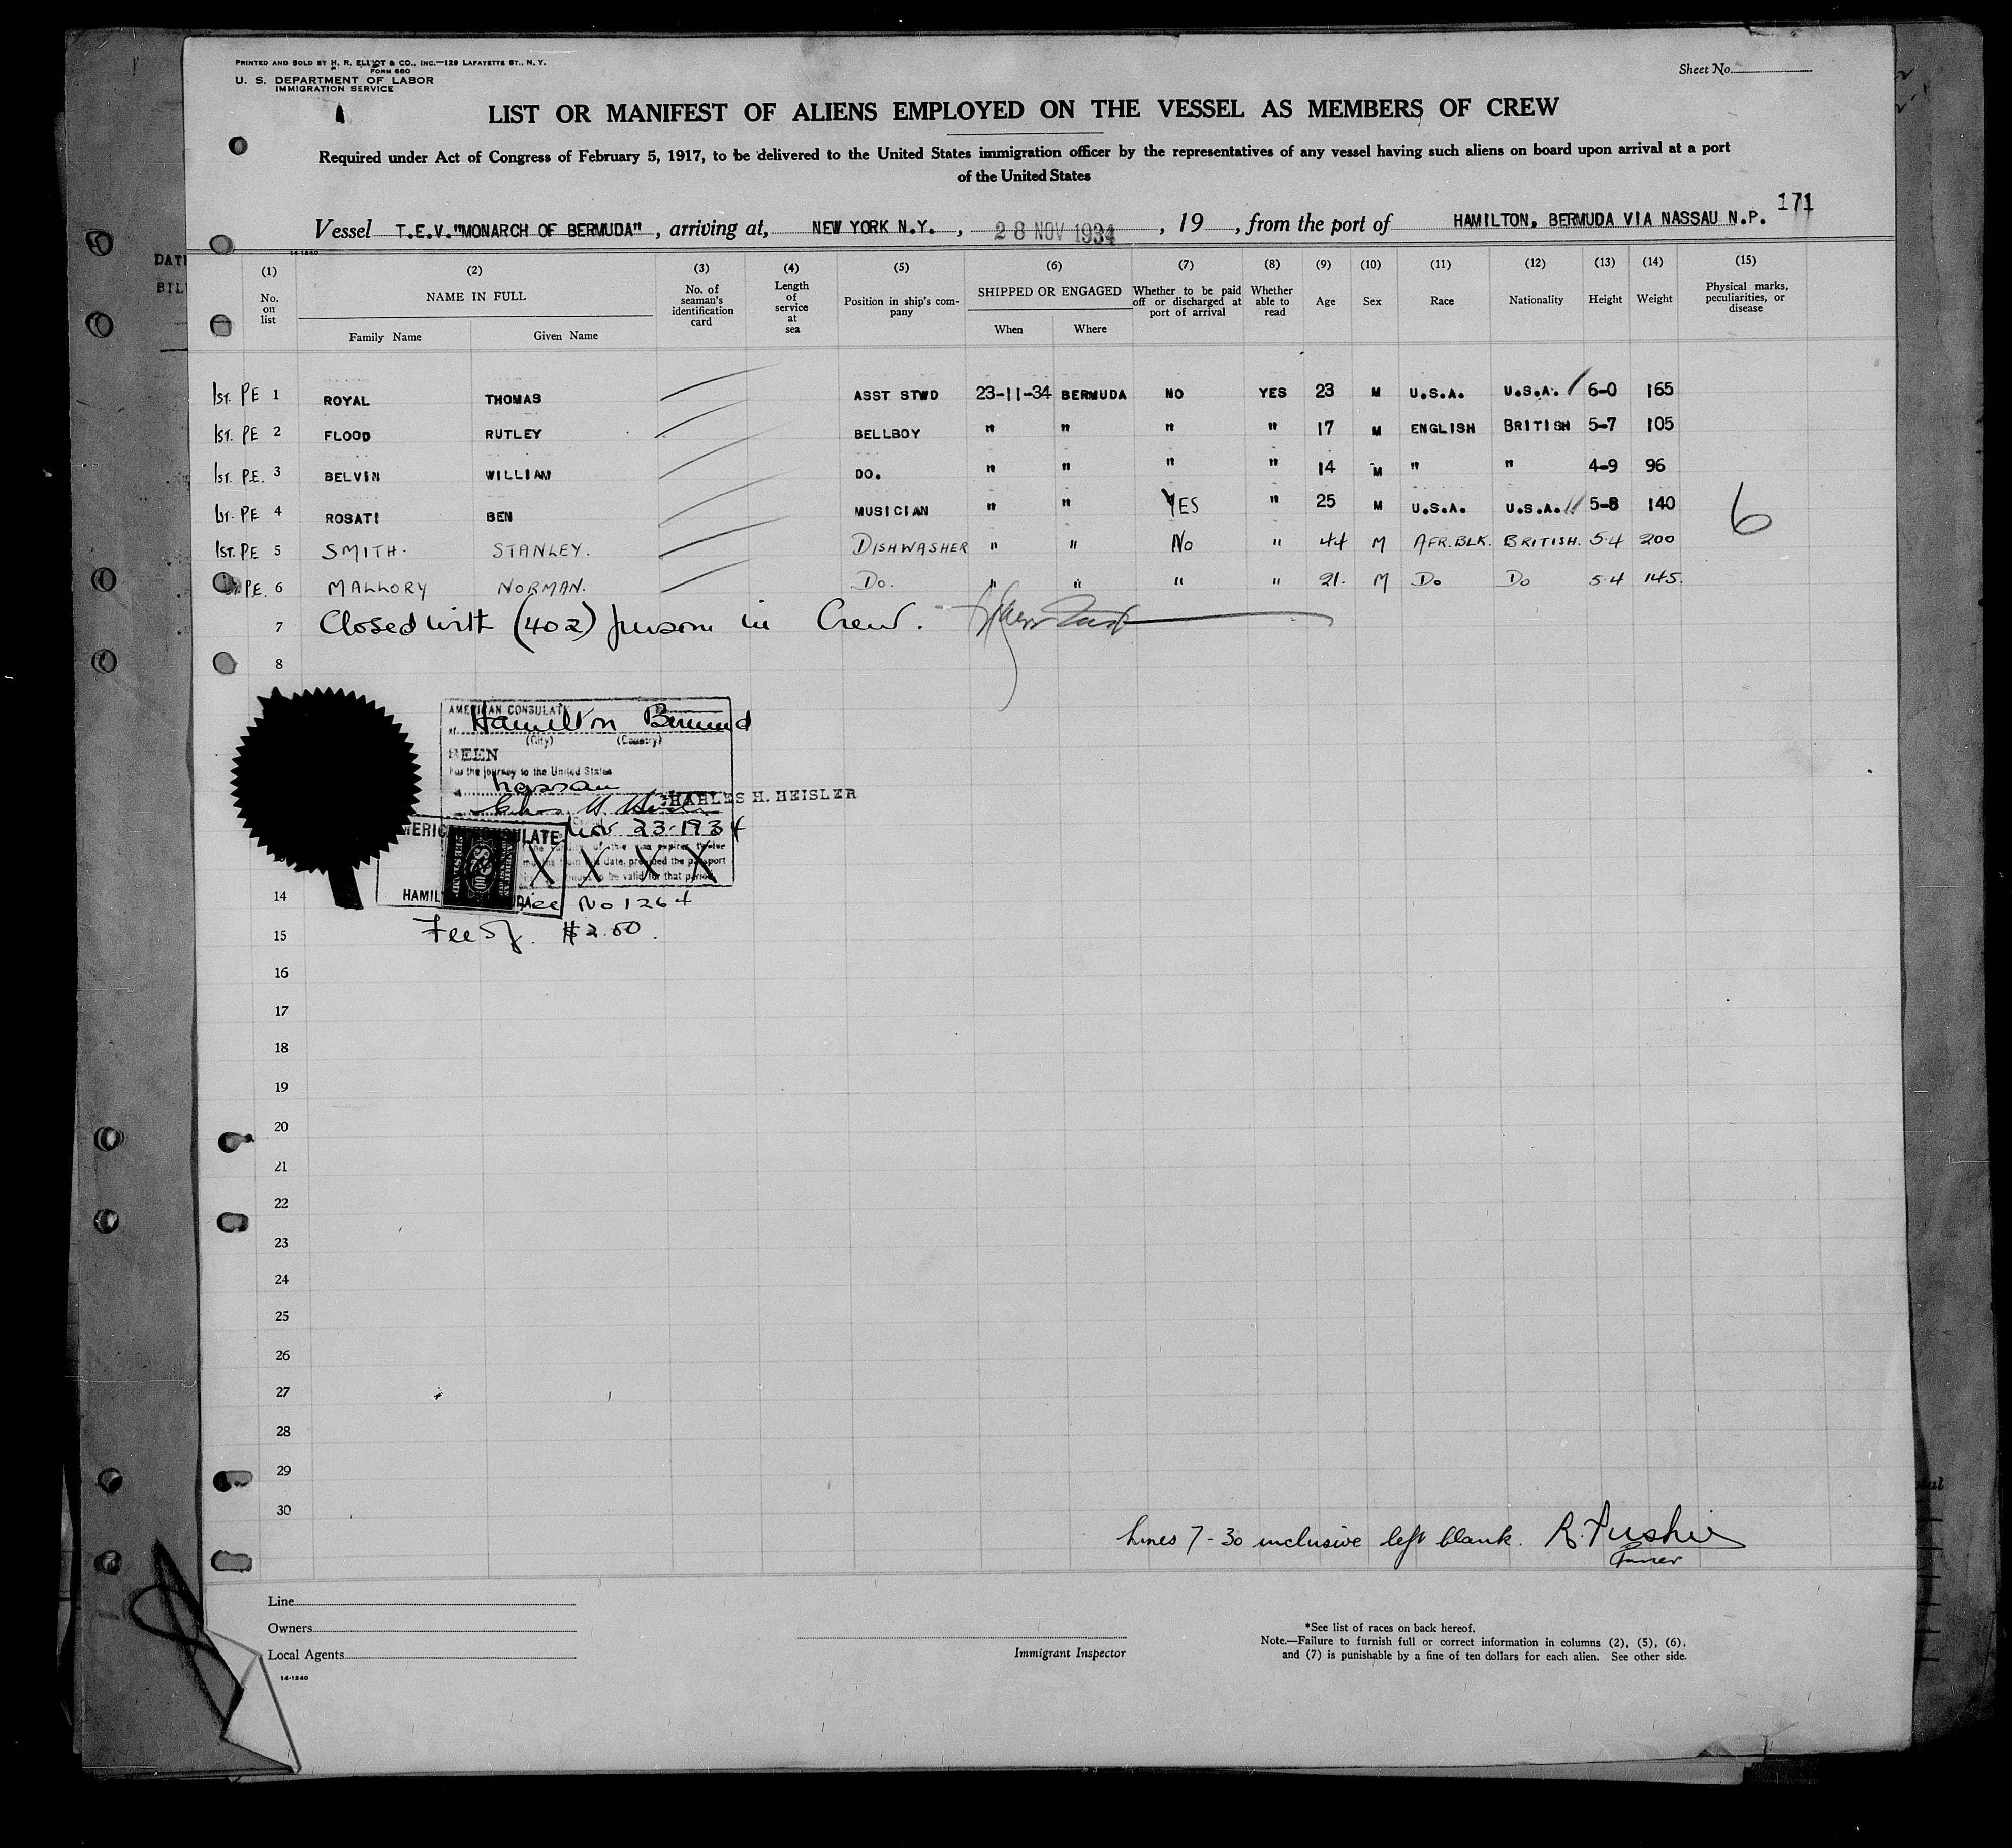 PRINTED AND SOLD BY H. R. ELLIOT & CO., INC.—129 LAFAYETTE ST., N. Y.
FORM 680
U. S. DEPARTMENT OF LABOR
IMMIGRATION SERVICE
Sheet No.
LIST OR MANIFEST OF ALIENS EMPLOYED ON THE VESSEL AS MEMBERS OF CREW
Required under Act of Congress of February 5, 1917, to be delivered to the United States immigration officer by the representatives of any vessel having such aliens on board upon arrival at a port
of the United States
171
Vessel T.E.V."MONARCH OF BERMUDA", arriving at, NEW YORK N.Y., 28 NOV 1934, 19, from the port of HAMILTON, BERMUDA VIA NASSAU N.P.
14-1240
(1) (2) (3) (4) (5) (6) (7) (8) (9) (10) (11) (12) (13) (14) (15)
No. on list NAME IN FULL No. of seaman's identification card Length of service at sea Position in ship's company SHIPPED OR ENGAGED Whether to be paid off or discharged at port of arrival Whether able to read Age Sex Race Nationality Height Weight Physical marks, peculiarities, or disease
Family Name Given Name When Where
1st. PE 1 ROYAL THOMAS ASST STWD 23-11-34 BERMUDA NO YES 23 M U.S.A. U.S.A. 6-0 165
1st. PE 2 FLOOD RUTLEY BELLBOY " " " " 17 M ENGLISH BRITISH 5-7 105
1st. P.E. 3 BELVIN WILLIAM DO. " " " " 14 M " " 4-9 96
1st. PE 4 ROSATI BEN MUSICIAN " " YES " 25 M U.S.A. U.S.A. 5-8 140
6
1st. PE 5 SMITH. STANLEY. DISHWASHER " " No " 44 M AFR.BLK. BRITISH. 5.4 200
PE. 6 MALLORY NORMAN. Do. " " " " 21. M Do Do 5.4 145.
7 Closed with (402) persons in Crew.
8
AMERICAN CONSULATE
Hamilton Bermud
(City) (Country)
SEEN
For the journey to the United States
Nassau
CHARLES H. HEISLER
Nov 23-1934
AMERICAN CONSULATE
X X X X
14
No 1264
15
Fee $2.00.
16
17
18
19
20
21
22
23
24
25
26
27
28
29
30
Lines 7-30 inclusive left blank.
Line
Owners
Local Agents
14-1240
Immigrant Inspector
*See list of races on back hereof.
Note.—Failure to furnish full or correct information in columns (2), (5), (6),
and (7) is punishable by a fine of ten dollars for each alien. See other side.